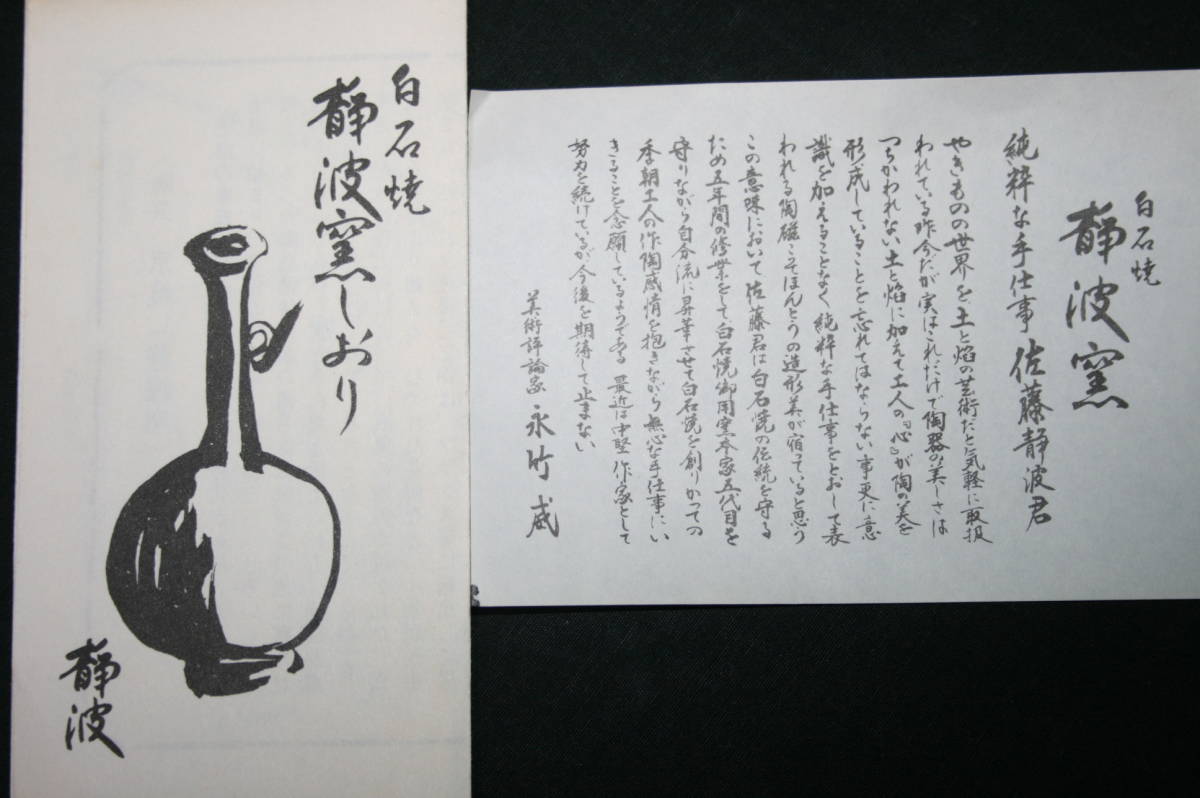 白石焼
静波窯しおり
静波
白石焼
静波窯
純粋な手仕事 佐藤静波君
やきものの世界を、土と焰の芸術だと気軽に取扱
われている昨今だが実はこれだけで陶器の美しさは
つちかわれない土と焰に加えて工人の『心』が陶の美を
形成していることを忘れてはならない事更に意
識を加えることなく純粋な手仕事をとおして表
われる陶磁こそほんとうの造形美が宿っていると思う
この意味において佐藤君は白石焼の伝統を守る
ため五年間の修業をして、白石焼御用窯本家五代目を
守りながら自分流に昇華させて白石焼を創りかつての
李朝工人の作陶感情を抱きながら無心な手仕事にい
きることを念願しているようである 最近は中堅作家として
努力を続けているが今後を期待して止まない
美術評論家 永竹威